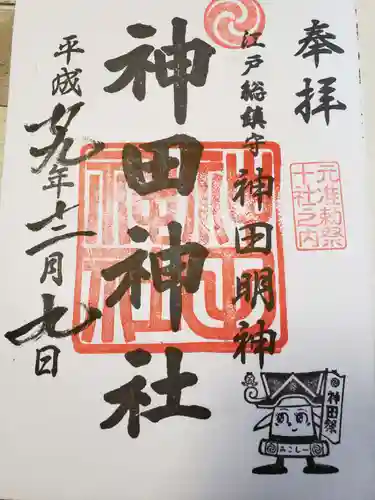 奉拝
元准勅祭
十社之内
江戸総鎮守
神田明神
神田神社
平成廿九年十二月九日
神田祭
みこしー